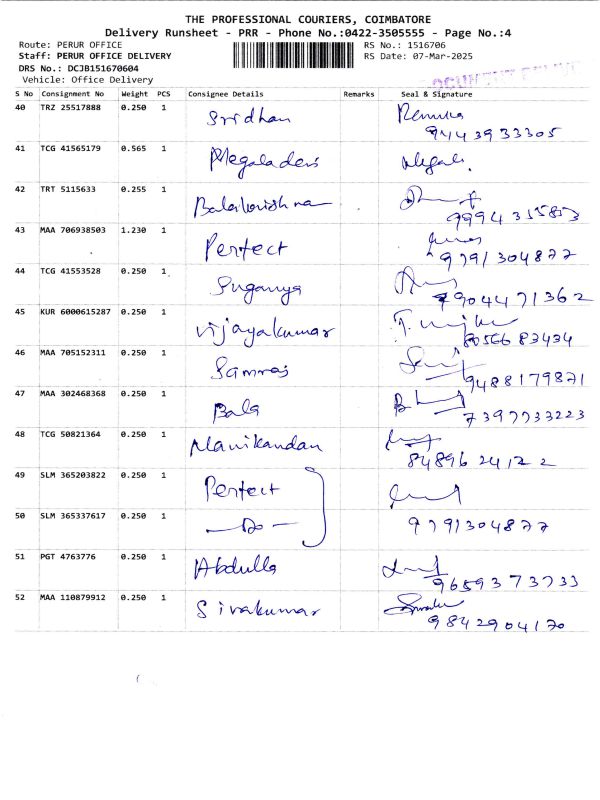 THE PROFESSIONAL COURIERS, COIMBATORE
Delivery Runsheet - PRR - Phone No.:0422-3505555 - Page No.:4
Route: PERUR OFFICE RS No.: 1516706
Staff: PERUR OFFICE DELIVERY RS Date: 07-Mar-2025
DRS No.: DCJB151670604
Vehicle: Office Delivery
S No Consignment No Weight PCS Consignee Details Remarks Seal & Signature
40 TRZ 25517888 0.250 1 Sridhan Renuka
9443933305
41 TCG 41565179 0.565 1 Megaladevi Megala
42 TRT 5115633 0.255 1 Balakrishna
43 MAA 706938503 1.230 1 Perfect
9791304877
44 TCG 41553528 0.250 1 Suganya
7904471362
45 KUR 6000615287 0.250 1 Vijayakumar
8056683434
46 MAA 705152311 0.250 1 Samraj
9488179871
47 MAA 302468368 0.250 1 Bala
7397733223
48 TCG 50821364 0.250 1 Manikandan
8489624122
49 SLM 365203822 0.250 1 Perfect
50 SLM 365337617 0.250 1 — Do —
9791304877
51 PGT 4763776 0.250 1 Abdulla
9659373733
52 MAA 110879912 0.250 1 Sivakumar
9842904170